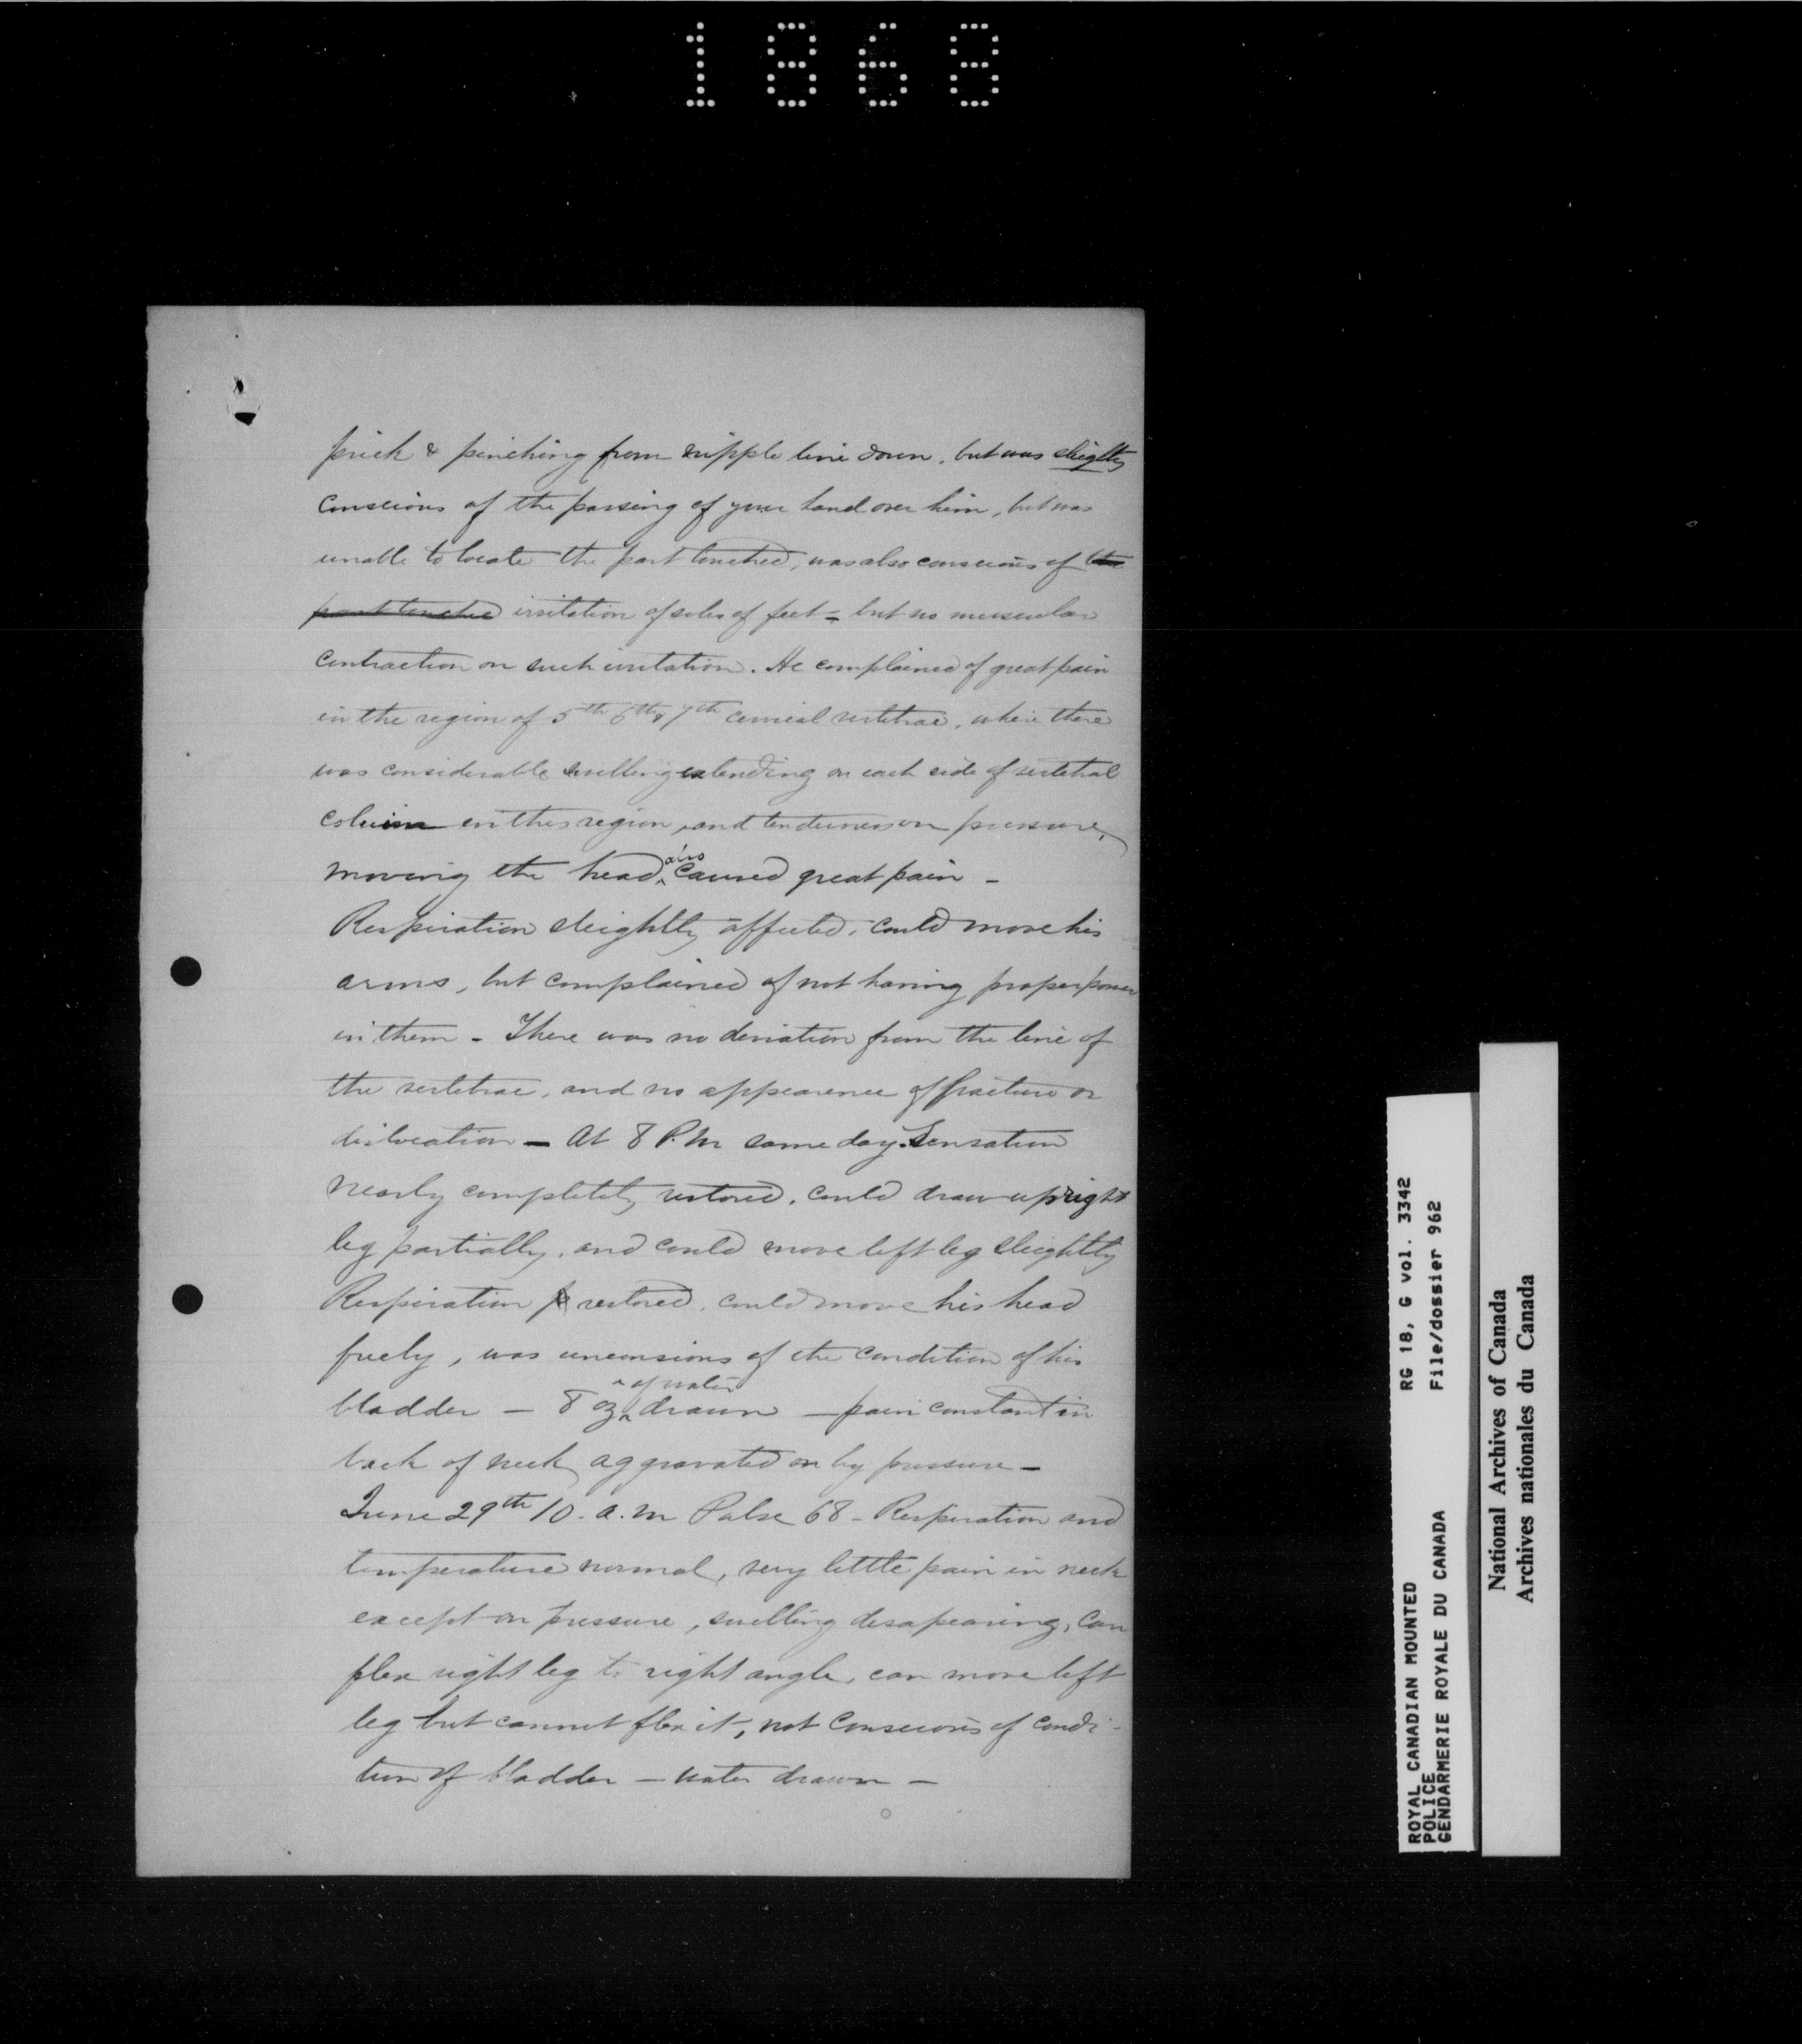 1868
prick & pinching from nipple line down, but was sleightly
conscious of the passing of your hand over him, but was
unable to locate the part touched, was also conscious of the
part touched irritation of soles of feet - but no muscular
contraction on such irritation. He complained of great pain
in the region of 5th 6th & 7th cervical vertebrae, where there
was considerable swelling extending on each side of vertebral
column in this region, and tenderness on pressure,
moving the head also caused great pain -
Respiration sleightly affected, could move his
arms, but complained of not having proper power
in them - There was no deviation from the line of
the vertebrae, and no appearence of fracture or
dislocation - At 8 P.M same day. Sensation
nearly completely restored, could draw up right
leg partially, and could move left leg sleightly
Respiration restored, could move his head
freely, was unconsious of the condition of his
bladder - 8 oz of water drawn - pain constant in
back of neck aggravated on by pressure -
June 29th 10. a.m Pulse 68 - Respiration and
temperature normal, very little pain in neck
except on pressure, swelling desapearing, can
flex right leg to right angle, can move left
leg but cannot flex it, not conscious of condi-
tion of bladder - water drawn -
ROYAL CANADIAN MOUNTED RG 18, G vol. 3342
POLICE
GENDARMERIE ROYALE DU CANADA File/dossier 962
National Archives of Canada
Archives nationales du Canada